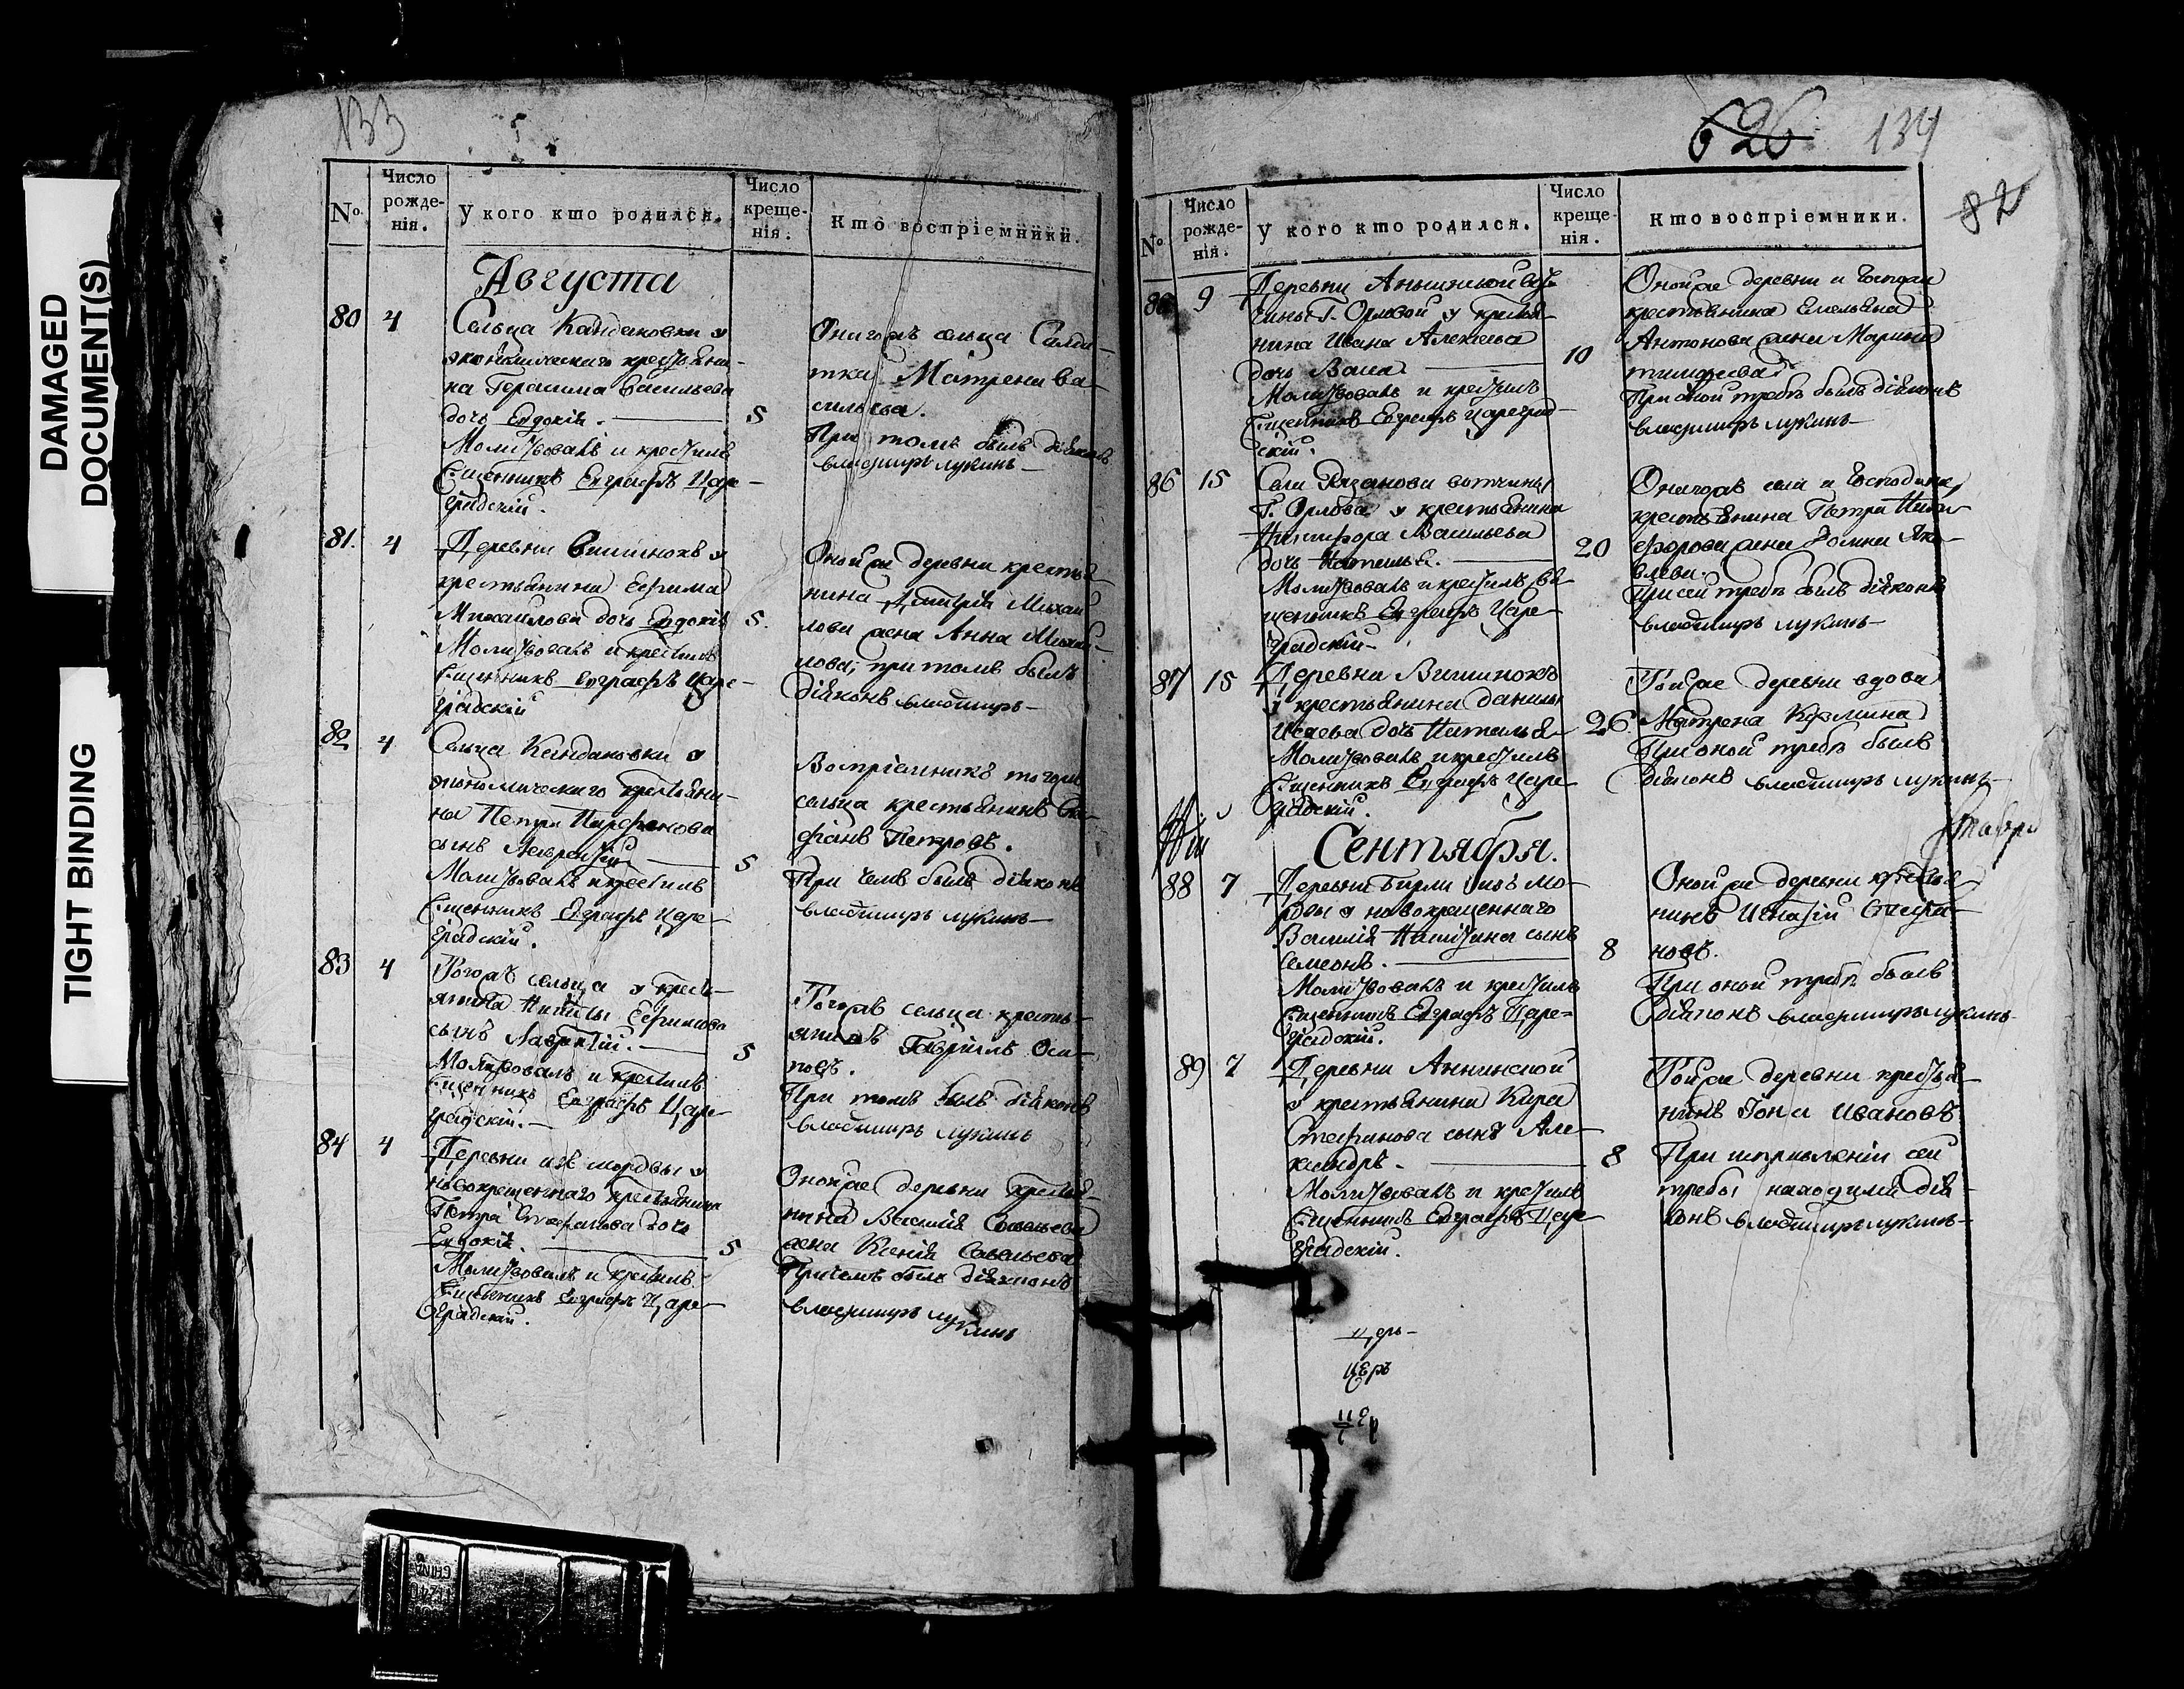 DAMAGED
DOCUMENT(S)
TIGHT BINDING
133
№
Число
рожде-
нія.
У кого кто родился.
Число
креще-
нія.
Кто воспріемники.
Августа
80
4
Сельца Кандаковки у
экономическаго крестьяни-
на Герасима Васильева
дочь Евдокія.
5
Молитвовалъ и крестилъ
Священникъ Евграфъ Царе-
градскій.
Оногожъ сельца Салда-
тка Матрена Ва-
сильева.
При томъ былъ діяконъ
Владимиръ Лукинъ
81.
4
Деревни Вишнокъ у
крестьянина Ефима
Михаилова дочь Евдокія
5.
Молитвовалъ и крестилъ
Священникъ Евграфъ Царе-
градскій
Онойже деревни крестья-
нина Дмитрія Михаи-
лова жена Анна Михаи-
лова; при томъ былъ
діяконъ Владимиръ
82
4
Сельца Кандаковки у
экономическаго крестьяни-
на Петра Парфенова
сынъ Лаврентій
5
Молитвовалъ и крестилъ
Священникъ Евграфъ Царе-
градскій.
Воспріемникъ тогожъ
сельца крестьянинъ
Петровъ.
При чемъ былъ діяконъ
Владимиръ Лукинъ
83
4
Тогожъ сельца у кресть-
янина Никиты Ефимова
сынъ Лаврентій.
5
Молитвовалъ и крестилъ
Священникъ Евграфъ Царе-
градскій.
Тогожъ сельца кресть-
янинъ Гавріилъ Оси-
повъ.
При томъ былъ діяконъ
Владимиръ Лукинъ
84
4
Деревни изъ мордвы у
новокрещеннаго крестьянина
Петра Стефанова дочь
Евдокія.
5
Молитвовалъ и крестилъ
Священникъ Евграфъ Царе-
градскій.
Онойже деревни крестья-
нина Василія Савельева
жена Ксенія Савельева
Причемъ былъ діяконъ
Владимиръ Лукинъ
626
134
82
№
Число
рожде-
нія.
У кого кто родился.
Число
креще-
нія.
Кто воспріемники.
9
Деревни Аннинской вот-
чины Г. Орловой у крестья-
нина Ивана Алексеева
дочь Васса
10
Молитвовалъ и крестилъ
Священникъ Евграфъ Цареград-
скій.
Онойже деревни и Госпожи
крестьянина Емельяна
Антонова жена Марина
Тимофеева
При оной требѣ былъ діяконъ
Владимиръ Лукинъ
86
15
Села Рязанова вотчины
Г. Орлова у крестьянина
Никифора Васильева
дочь Наталья.
20
Молитвовалъ и крестилъ Свя-
щенникъ Евграфъ Царе-
градскій
Оногожъ села и Господина
крестьянина Петра Ники-
форова жена Домна Яко-
влева.
При сей требѣ былъ діяконъ
Владимиръ Лукинъ
87
15
Деревни Вишнокъ
у крестьянина Данилы
Исаева дочь Наталья
26.
Молитвовалъ и крестилъ
Священникъ Евграфъ Царе
градскій.
Тойже деревни вдова
Матрена Козмина
При оной требѣ былъ
діяконъ Владимиръ Лукинъ
Сентября.
88
7
Деревни Бирли изъ мо-
рдвы у новокрещеннаго
Василія Никитина сынъ
Симеонъ.
8
Молитвовалъ и крестилъ
Священникъ Евграфъ Царе-
градскій.
Онойже деревни крестья-
нинъ Игнатій Стефа-
новъ.
При оной требѣ былъ
діяконъ Владимиръ Лукинъ
89
7
Деревни Аннинской
у крестьянина Кира
Стефанова сынъ Але-
ксандръ.
8
Молитвовалъ и крестилъ
Священникъ Евграфъ Царе-
градскій.
Тойже деревни крестья-
нинъ Іона Ивановъ
При исправленіи сей
требы находился дія-
конъ Владимиръ Лукинъ
церъ
церъ